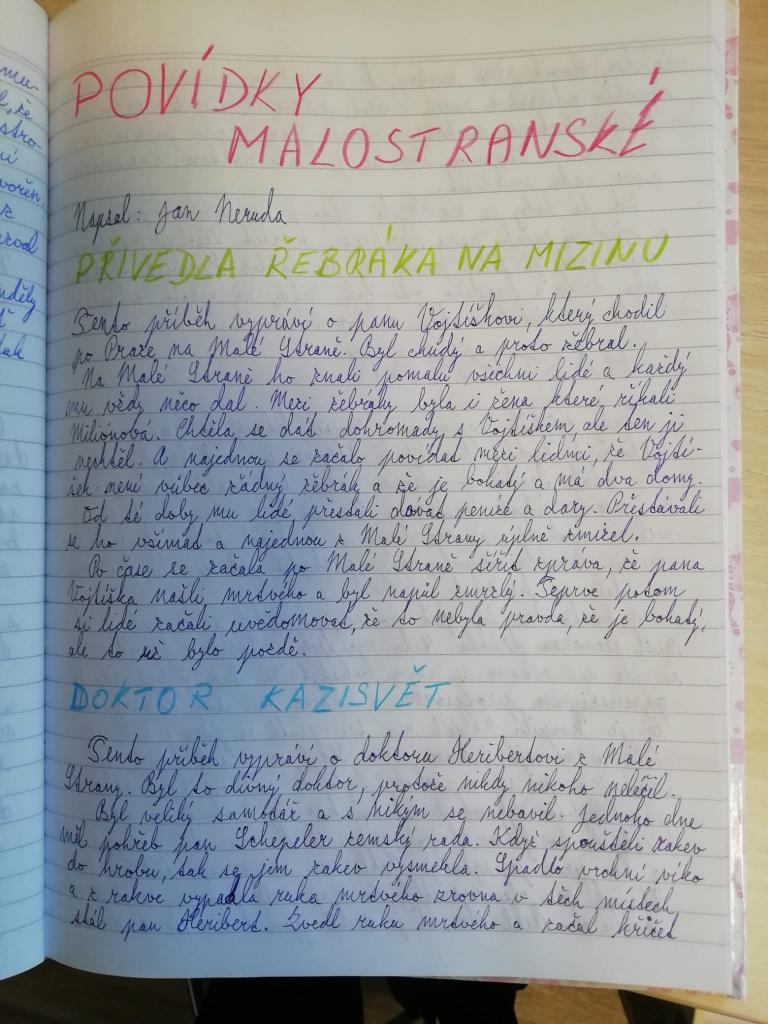 POVÍDKY
MALOSTRANSKÉ
Napsal: Jan Neruda
PŘIVEDLA ŽEBRÁKA NA MIZINU
Tento příběh vypráví o panu Vojtíškovi, který chodil
po Praze na Malé Straně. Byl chudý a proto žebral.
Na Malé Straně ho znali pomalu všichni lidé a každý
mu vždy něco dal. Mezi žebráky byla i žena které, říkali
Miliónová. Chtěla se dát dohromady s Vojtíškem, ale ten ji
nechtěl. A najednou se začalo povídat mezi lidmi, že Vojtí-
šek není vůbec žádný žebrák a že je bohatý a má dva domy.
Od té doby mu lidé přestali dávat peníze a dary. Přestávali
se ho všímat a najednou z Malé Strany úplně zmizel.
Po čase se začala po Malé Straně šířit zpráva, že pana
Vojtíška našli mrtvého a byl napůl zmrzlý. Teprve potom
si lidé začali uvědomovat, že to nebyla pravda, že je bohatý,
ale to už bylo pozdě.
DOKTOR KAZISVĚT
Tento příběh vypráví o doktoru Heribertovi z Malé
Strany. Byl to divný doktor, protože nikdy nikoho neléčil.
Byl veliký samotář a s nikým se nebavil. Jednoho dne
měl pohřeb pan Schepeler zemský rada. Když spouštěli rakev
do hrobu, tak se jim rakev vysmekla. Spadlo vrchní víko
a z rakve vypadla ruka mrtvého zrovna v těch místech
stál pan Heribert. Zvedl ruku mrtvého a začal křičet
mu-
l, že
stro-
ní
vořen,
z
rod
nděly
tak